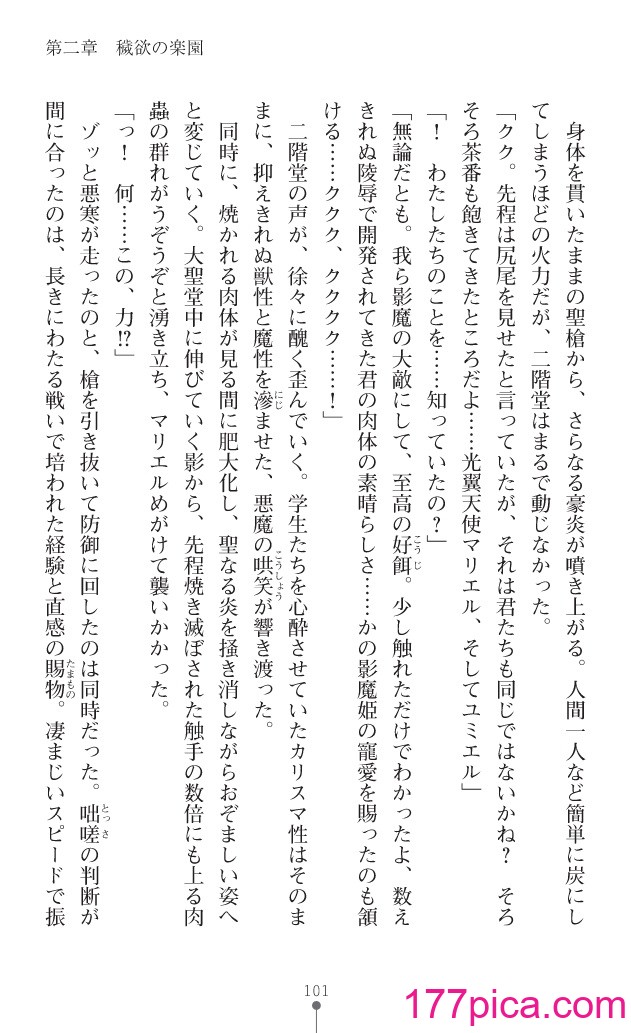 第二章　穢欲の楽園
　身体を貫いたままの聖槍から、さらなる豪炎が噴き上がる。人間一人など簡単に炭にし
てしまうほどの火力だが、二階堂はまるで動じなかった。
「クク。先程は尻尾を見せたと言っていたが、それは君たちも同じではないかね？　そろ
そろ茶番も飽きてきたところだよ……光翼天使マリエル、そしてユミエル」
「！　わたしたちのことを……知っていたの？」
「無論だとも。我ら影魔の大敵にして、至高の好餌。少し触れただけでわかったよ、数え
きれぬ陵辱で開発されてきた君の肉体の素晴らしさ……かの影魔姫の寵愛を賜ったのも頷
ける……ククク、クククク……！」
　二階堂の声が、徐々に醜く歪んでいく。学生たちを心酔させていたカリスマ性はそのま
まに、抑えきれぬ獣性と魔性を滲ませた、悪魔の哄笑が響き渡った。
　同時に、焼かれる肉体が見る間に肥大化し、聖なる炎を掻き消しながらおぞましい姿へ
と変じていく。大聖堂中に伸びていく影から、先程焼き滅ぼされた触手の数倍にも上る肉
蟲の群れがうぞうぞと湧き立ち、マリエルめがけて襲いかかった。
「っ！　何……この、力!?」
　ゾッと悪寒が走ったのと、槍を引き抜いて防御に回したのは同時だった。咄嗟の判断が
間に合ったのは、長きにわたる戦いで培われた経験と直感の賜物。凄まじいスピードで振
101
177pica.com